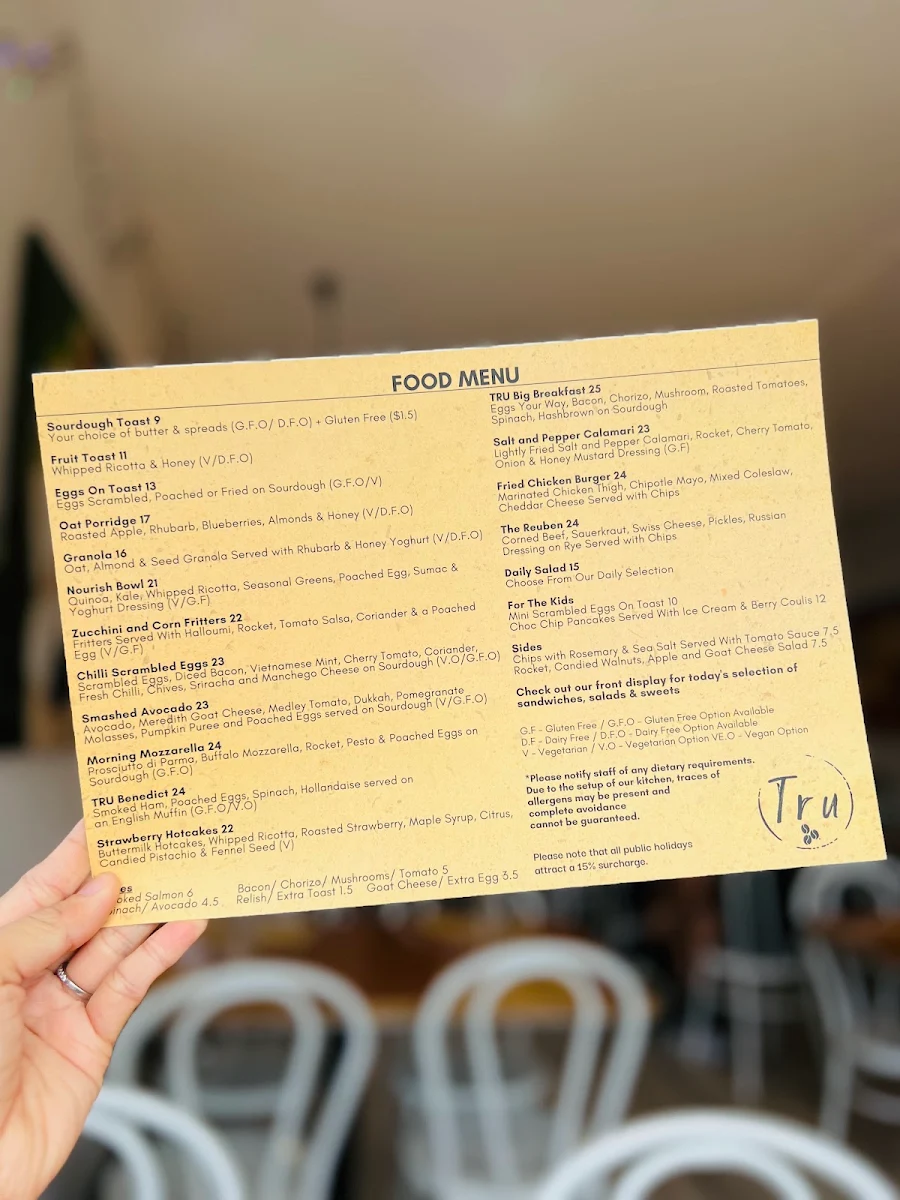 FOOD MENU
Sourdough Toast 9
Your choice of butter & spreads (G.F.O/ D.F.O) + Gluten Free ($1.5)
Fruit Toast 11
Whipped Ricotta & Honey (V/D.F.O)
Eggs On Toast 13
Eggs Scrambled, Poached or Fried on Sourdough (G.F.O/V)
Oat Porridge 17
Roasted Apple, Rhubarb, Blueberries, Almonds & Honey (V/D.F.O)
Granola 16
Oat, Almond & Seed Granola Served with Rhubarb & Honey Yoghurt (V/D.F.O)
Nourish Bowl 21
Quinoa, Kale, Whipped Ricotta, Seasonal Greens, Poached Egg, Sumac &
Yoghurt Dressing (V/G.F)
Zucchini and Corn Fritters 22
Fritters Served With Halloumi, Rocket, Tomato Salsa, Coriander & a Poached
Egg (V/G.F)
Chilli Scrambled Eggs 23
Scrambled Eggs, Diced Bacon, Vietnamese Mint, Cherry Tomato, Coriander,
Fresh Chilli, Chives, Sriracha and Manchego Cheese on Sourdough (V.O/G.F.O)
Smashed Avocado 23
Avocado, Meredith Goat Cheese, Medley Tomato, Dukkah, Pomegranate
Molasses, Pumpkin Puree and Poached Eggs served on Sourdough (V/G.F.O)
Morning Mozzarella 24
Prosciutto di Parma, Buffalo Mozzarella, Rocket, Pesto & Poached Eggs on
Sourdough (G.F.O)
TRU Benedict 24
Smoked Ham, Poached Eggs, Spinach, Hollandaise served on
an English Muffin (G.F.O/V.O)
Strawberry Hotcakes 22
Buttermilk Hotcakes, Whipped Ricotta, Roasted Strawberry, Maple Syrup, Citrus,
Candied Pistachio & Fennel Seed (V)
es
oked Salmon 6 Bacon/ Chorizo/ Mushrooms/ Tomato 5
inach/ Avocado 4.5 Relish/ Extra Toast 1.5 Goat Cheese/ Extra Egg 3.5
TRU Big Breakfast 25
Eggs Your Way, Bacon, Chorizo, Mushroom, Roasted Tomatoes,
Spinach, Hashbrown on Sourdough
Salt and Pepper Calamari 23
Lightly Fried Salt and Pepper Calamari, Rocket, Cherry Tomato,
Onion & Honey Mustard Dressing (G.F)
Fried Chicken Burger 24
Marinated Chicken Thigh, Chipotle Mayo, Mixed Coleslaw,
Cheddar Cheese Served with Chips
The Reuben 24
Corned Beef, Sauerkraut, Swiss Cheese, Pickles, Russian
Dressing on Rye Served with Chips
Daily Salad 15
Choose From Our Daily Selection
For The Kids
Mini Scrambled Eggs On Toast 10
Choc Chip Pancakes Served With Ice Cream & Berry Coulis 12
Sides
Chips with Rosemary & Sea Salt Served With Tomato Sauce 7.5
Rocket, Candied Walnuts, Apple and Goat Cheese Salad 7.5
Check out our front display for today's selection of
sandwiches, salads & sweets
G.F - Gluten Free / G.F.O - Gluten Free Option Available
D.F - Dairy Free / D.F.O - Dairy Free Option Available
V - Vegetarian / V.O - Vegetarian Option VE.O - Vegan Option
*Please notify staff of any dietary requirements.
Due to the setup of our kitchen, traces of
allergens may be present and
complete avoidance
cannot be guaranteed.
Please note that all public holidays
attract a 15% surcharge.
Tru